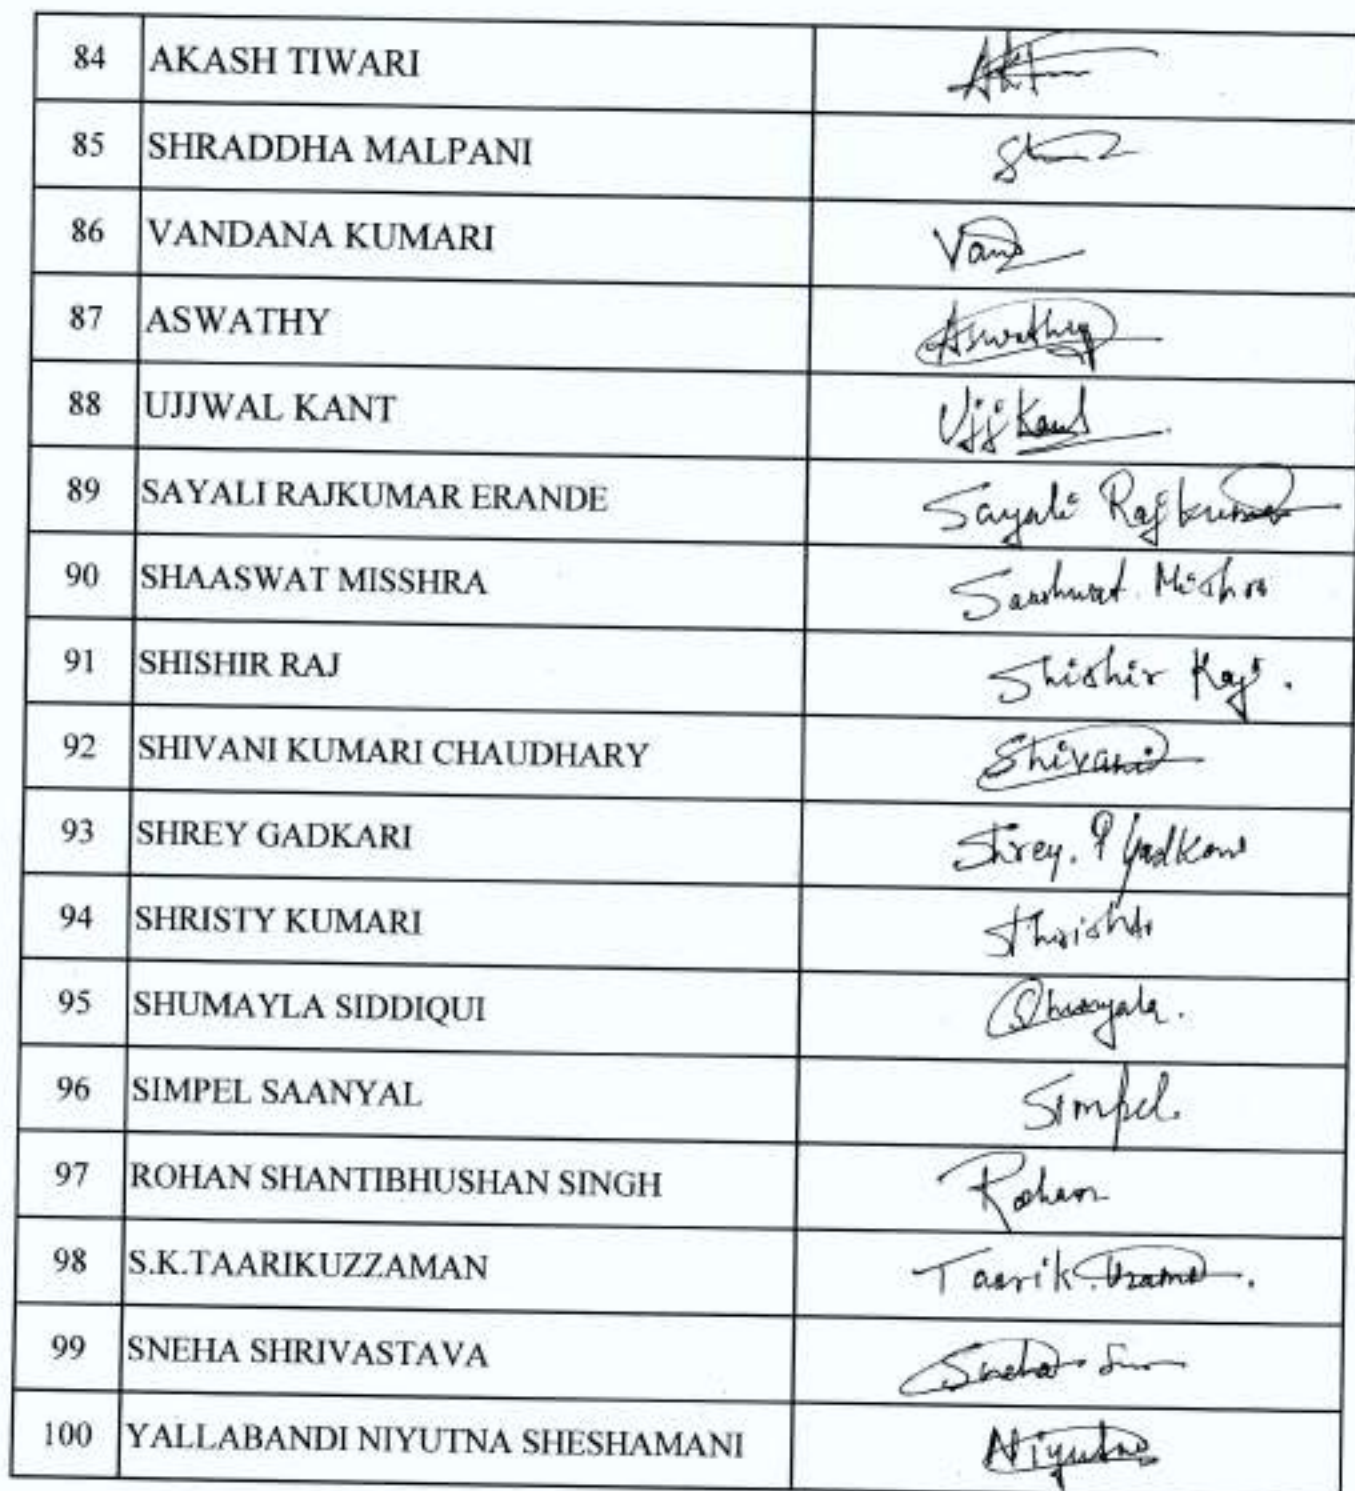 84 AKASH TIWARI
85 SHRADDHA MALPANI
86 VANDANA KUMARI Vand
87 ASWATHY Aswathy
88 UJJWAL KANT Ujj Kant
89 SAYALI RAJKUMAR ERANDE Sayali Rajkumar
90 SHAASWAT MISSHRA Saashwat Mishra
91 SHISHIR RAJ Shishir Raj.
92 SHIVANI KUMARI CHAUDHARY Shivani
93 SHREY GADKARI Shrey. P Gadkari
94 SHRISTY KUMARI Shrishti
95 SHUMAYLA SIDDIQUI
96 SIMPEL SAANYAL Simpel.
97 ROHAN SHANTIBHUSHAN SINGH Rohan
98 S.K.TAARIKUZZAMAN Taarik
99 SNEHA SHRIVASTAVA Sneha
100 YALLABANDI NIYUTNA SHESHAMANI Niyutna